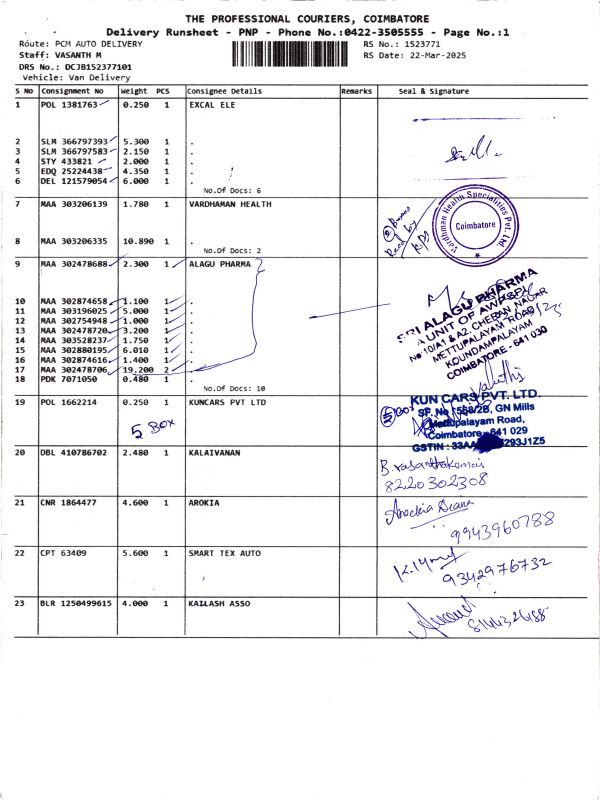 THE PROFESSIONAL COURIERS, COIMBATORE
Delivery Runsheet - PNP - Phone No.:0422-3505555 - Page No.:1
Route: PCM AUTO DELIVERY RS No.: 1523771
Staff: VASANTH M RS Date: 22-Mar-2025
DRS No.: DCJB152377101
Vehicle: Van Delivery
S No Consignment No Weight PCS Consignee Details Remarks Seal & Signature
1 POL 1381763 0.250 1 EXCAL ELE
2 SLM 366797393 5.300 1 .
3 SLM 366797583 2.150 1 .
4 STY 433821 2.000 1 .
5 EDQ 25224438 4.350 1 .
6 DEL 121579054 6.000 1 .
No.Of Docs: 6
7 MAA 303206139 1.780 1 VARDHAMAN HEALTH
Vardhman Health Specialities Pvt. Ltd
Coimbatore
8 MAA 303206335 10.890 1 .
No.Of Docs: 2
9 MAA 302478688 2.300 1 ALAGU PHARMA
10 MAA 302874658 1.100 1 .
11 MAA 303196025 5.000 1 .
12 MAA 302754948 1.000 1 .
13 MAA 302478720 3.200 1 .
14 MAA 303528237 1.750 1 .
15 MAA 302880195 6.010 1 .
16 MAA 302874616 1.400 1 .
17 MAA 302478706 19.200 2 .
18 PDK 7071050 0.480 1 .
No.Of Docs: 10
SRI ALAGU PHARMA
A UNIT OF
No 10/A1 & A2, CHERAN NAGAR
METTUPALAYAM ROAD
KOUNDAMPALAYAM
COIMBATORE - 641 030
19 POL 1662214 0.250 1 KUNCARS PVT LTD
5 BOX
KUN CARS PVT. LTD.
SF. No : 558/2B, GN Mills
Mettupalayam Road,
Coimbatore - 641 029
GSTIN : 33AA 293J1Z5
20 DBL 410786702 2.480 1 KALAIVANAN
B. Vasanthakumar
8220302308
21 CNR 1864477 4.600 1 AROKIA
9943960788
22 CPT 63409 5.600 1 SMART TEX AUTO
9342976732
23 BLR 1250499615 4.000 1 KAILASH ASSO